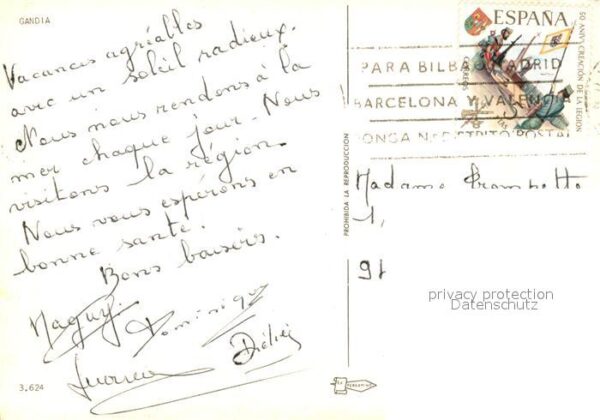 GANDIA
Vacances agréables
avec un soleil radieux.
Nous nous rendons à la
mer chaque jour. Nous
visitons la région.
Nous vous espérons en
bonne santé.
Bons baisers.
Maguy.
Dominique
Didier
3.624
PROHIBIDA LA REPRODUCCION
ESPAÑA
50 ANIV. CREACIÓN DE LA LEGION
CORREOS
PARA BILBAO MADRID
BARCELONA Y VALENCIA
PONGA Nº DISTRITO POSTAL
Madame
1,
91
privacy protection
Datenschutz